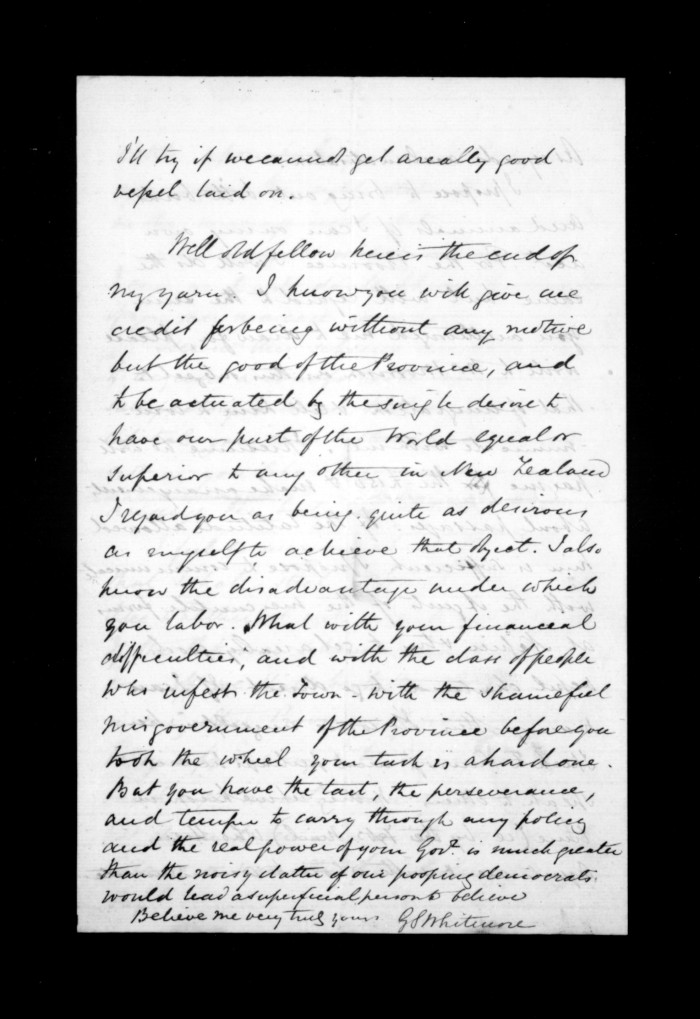 I'll try if we cannot get a really good
vessel laid on.
Well old fellow here is the end of
my yarn. I know you will give me
credit for being without any motive
but the good of the Province, and
to be actuated by the single desire to
have our part of the World equal or
superior to any other in New Zealand
I regard you as being quite as desirous
as myself to achieve that object. I also
know the disadvantage under which
you labor. What with your financial
difficulties, and with the class of people
who infest the Town - with the shameful
misgovernment of the Province before you
took the wheel your task is a hard one.
But you have the tact, the perseverance,
and temper to carry through any policy
and the real power of your Govt. is much greater
than the noisy clatter of our democrats
would lead a superficial person to believe
Believe me very truly yours GS Whitmore